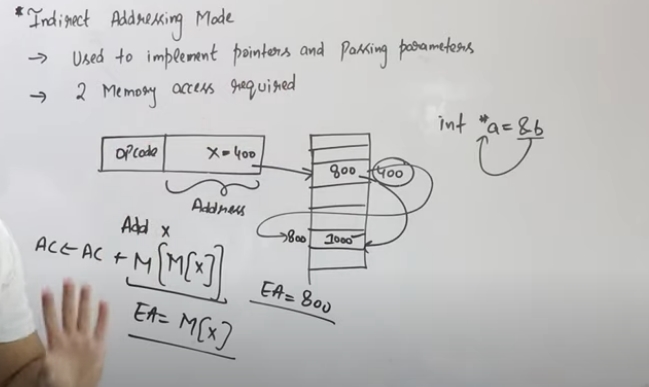 * Indirect Addressing Mode
→ Used to implement pointers and Passing parameters
→ 2 Memory access required
int *a = &b
OPcode X=400
800 400
Address
Add X
800 1000
AC ← AC + M[M[X]]
EA = 800
EA = M[X]